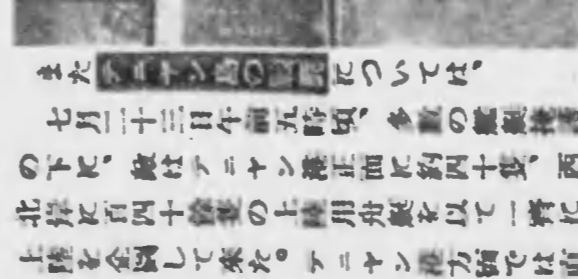 またテニヤン島の については、
七月二十三日午前五時頃、多數の
の下に、敵はテニヤン港正面に約四十隻、西
北岸に百四十餘隻の上陸用舟艇を以て一齊に
上陸を企圖して來た。テニヤン港方面では